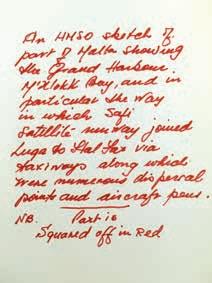 An HMSO sketch of
part of Malta showing
the Grand Harbour
M'Xlokk Bay, and in
particular the way
in which Safi
satellite runway joined
Luqa to Hal Far via
taxiways along which
were numerous dispersal
points and aircraft pens.
NB. Part is
Squared off in Red